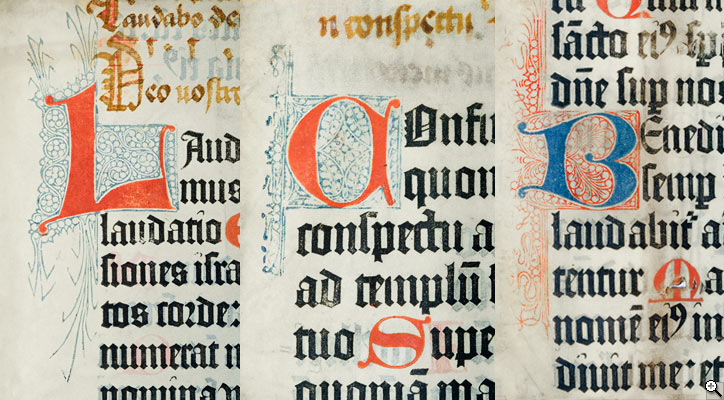 Laudabo de
Deo nostro
LAud
mus
laudatio
siones isra
tos corde:
numerat
nomina
n conspectu
COnfi
quon
conspectu a
ad templū
tuo Supe
quoniā ma
sācto eiꝰ
dn̄e sup nos
BEnedi
semp
laudabit a
tentur
nomē eiꝰ in
diuit me: et